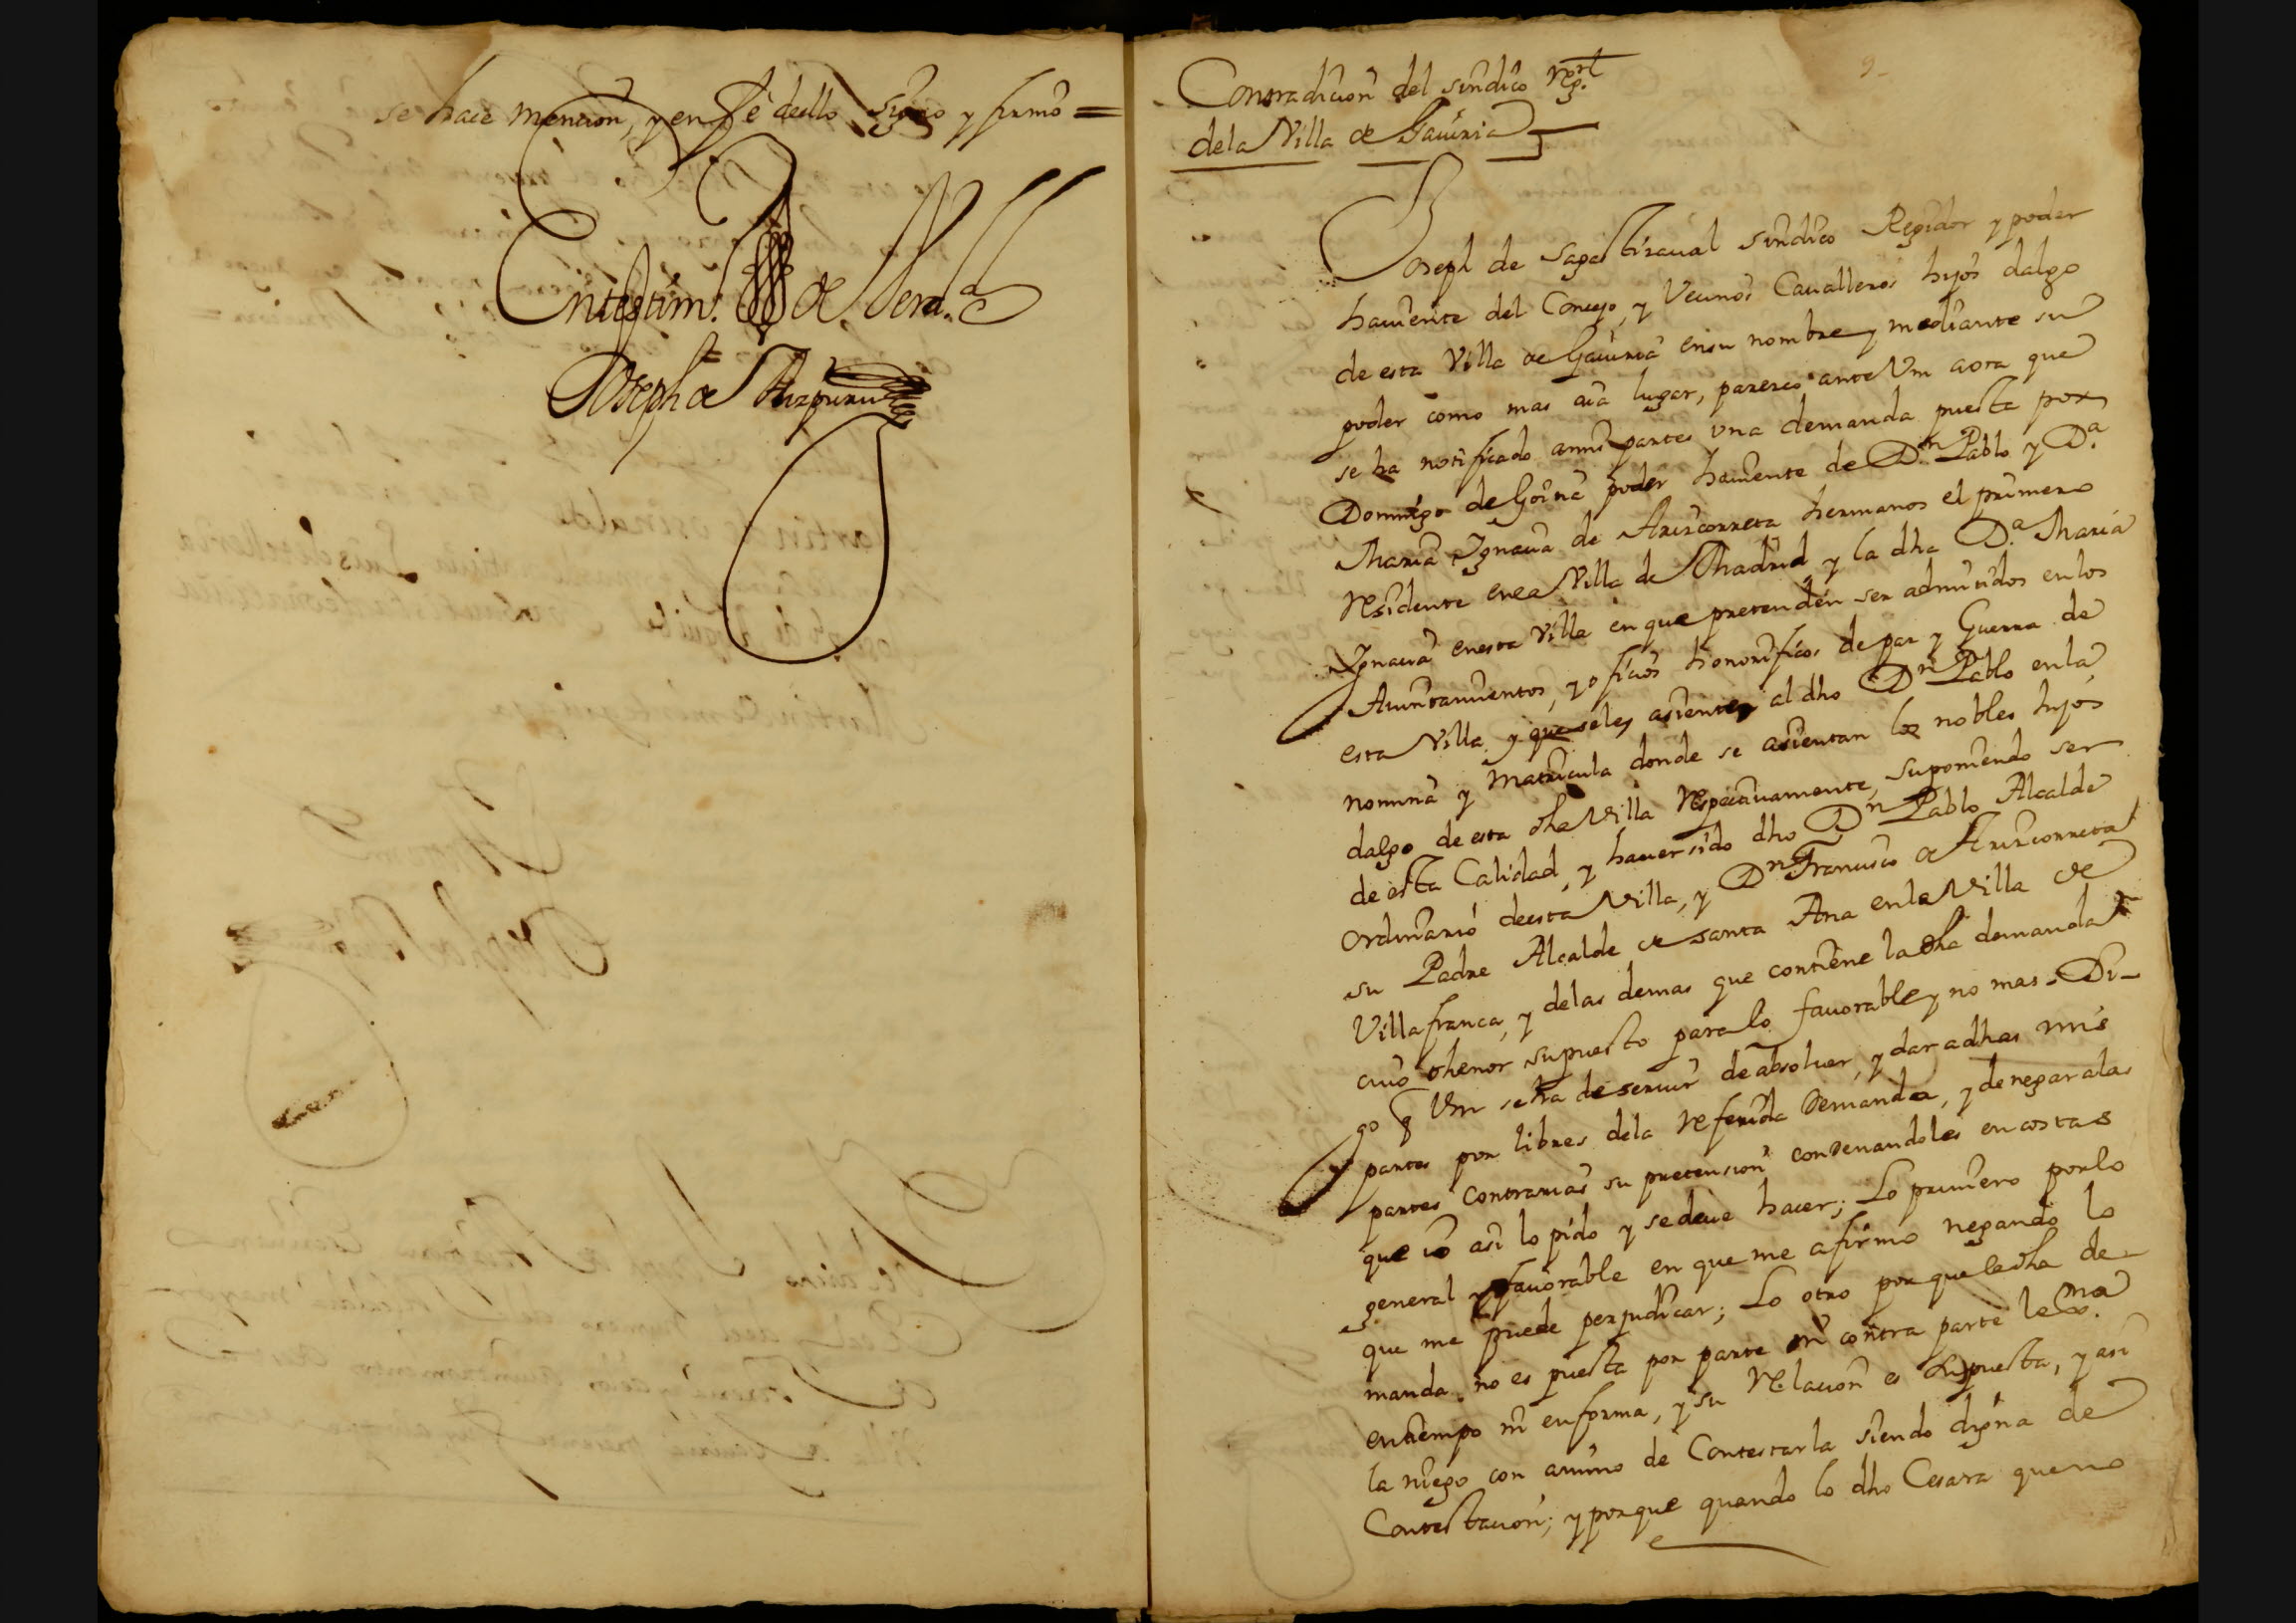 se hace mencion, y en fe dello signo y firmo =
En testim.º de Verd.
Joseph de Aizpuru
9
Contradicion del sindico regl.
de la Villa de Gauiria
Joseph de Sagastizaual sindico Regidor y poder
hauiente del Concejo, y Vecinos Caualleros hijos dalgo
de esta Villa de Gauiria en su nombre y mediante su
poder como mas aia lugar, paresco ante Vm aora que
se ha notificado a mis partes vna demanda puesta por
Domingo de Goina poder hauiente de Dn. Pablo y Da.
Maria Ygnacia de Arizcorreta hermanos el primero
residente en la Villa de Madrid y la dha Da. Maria
Ygnacia en esta Villa en que pretenden ser admitidos en los
Aiuntamientos, y oficios honorificos de paz y Guerra de
esta Villa y que seles asiente al dho Dn. Pablo en la
nomina y Matricula donde se asientan los nobles hijos
dalgo de esta dha Villa respectiuamente, suponiendo ser
de esta Calidad, y hauer sido dho Dn. Pablo Alcalde
ordinario de esta Villa, y Dn. Francisco de Arizcorreta
su Padre Alcalde de santa Ana en la Villa de
Villafranca, y delas demas que contiene la dha demanda
cuio thenor supuesto para lo fauorable y no mas = Di-
go q Vm se ha de seruir de absoluer, y dar a dhas mis
partes por libres dela referida demanda, y denegar alas
partes contrarias su pretension condenandoles en costas
que io asi lo pido y se deue hacer; Lo primero por lo
general y fauorable en que me afirmo negando lo
que me puede perjudicar; Lo otro por que la dha de-
manda no es puesta por parte ni contra parte lexma.
en tiempo ni en forma, y su relacion es supuesta, y asi
la niego con animo de Contestarla siendo digna de
Contestacion; y porque quando lo dho Cesara que no